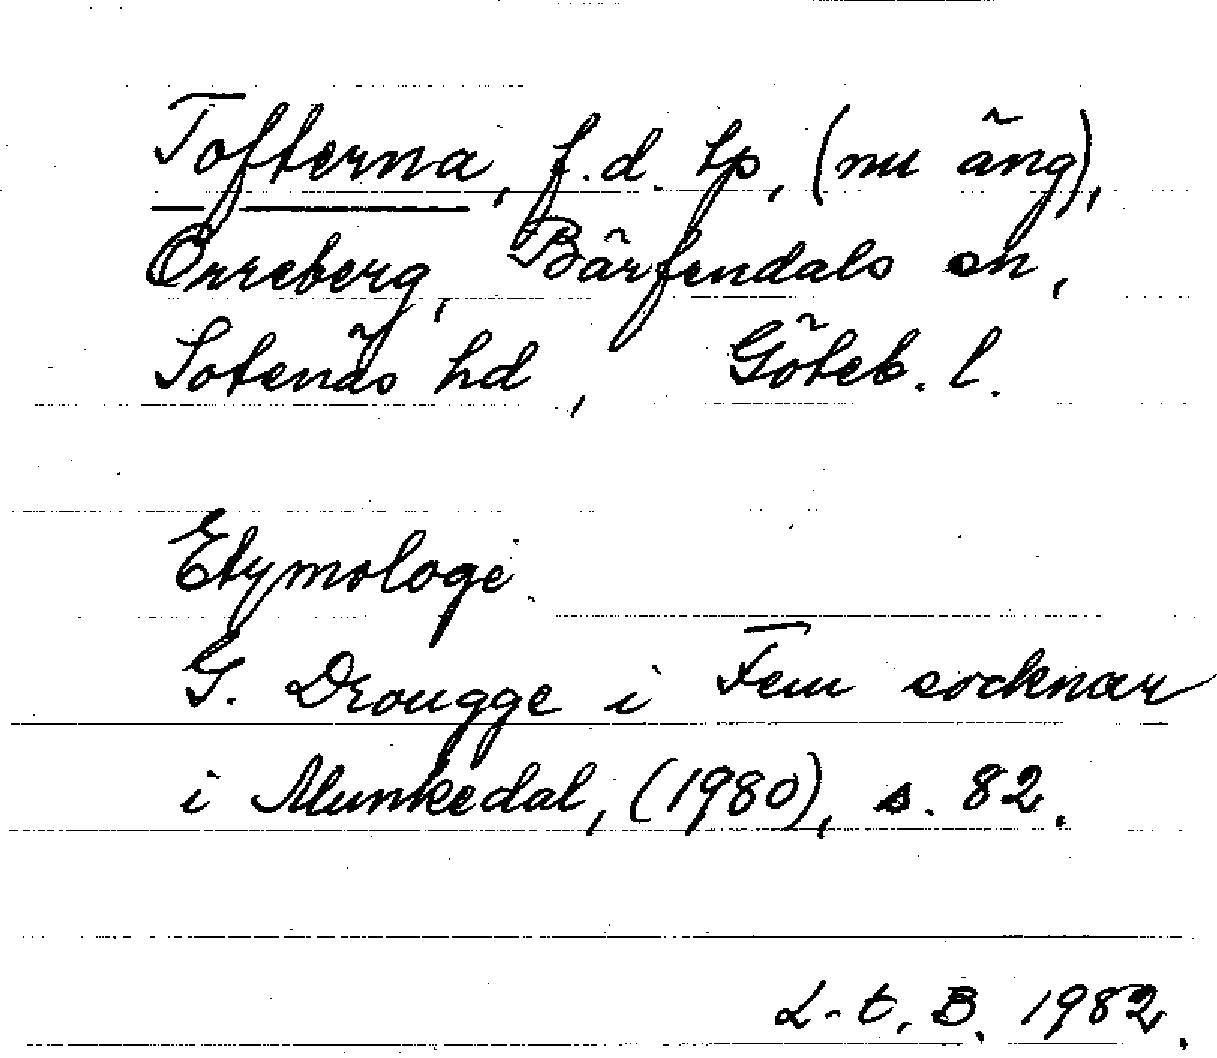 Tofterna, f.d. tp, (nu äng),
Orreberg, Bärfendals sn,
Sotenäs hd, Göteb. l.
Etymologi.
G. Drougge i Fem socknar
i Munkedal, (1980), s. 82.
L-t. B. 1982.